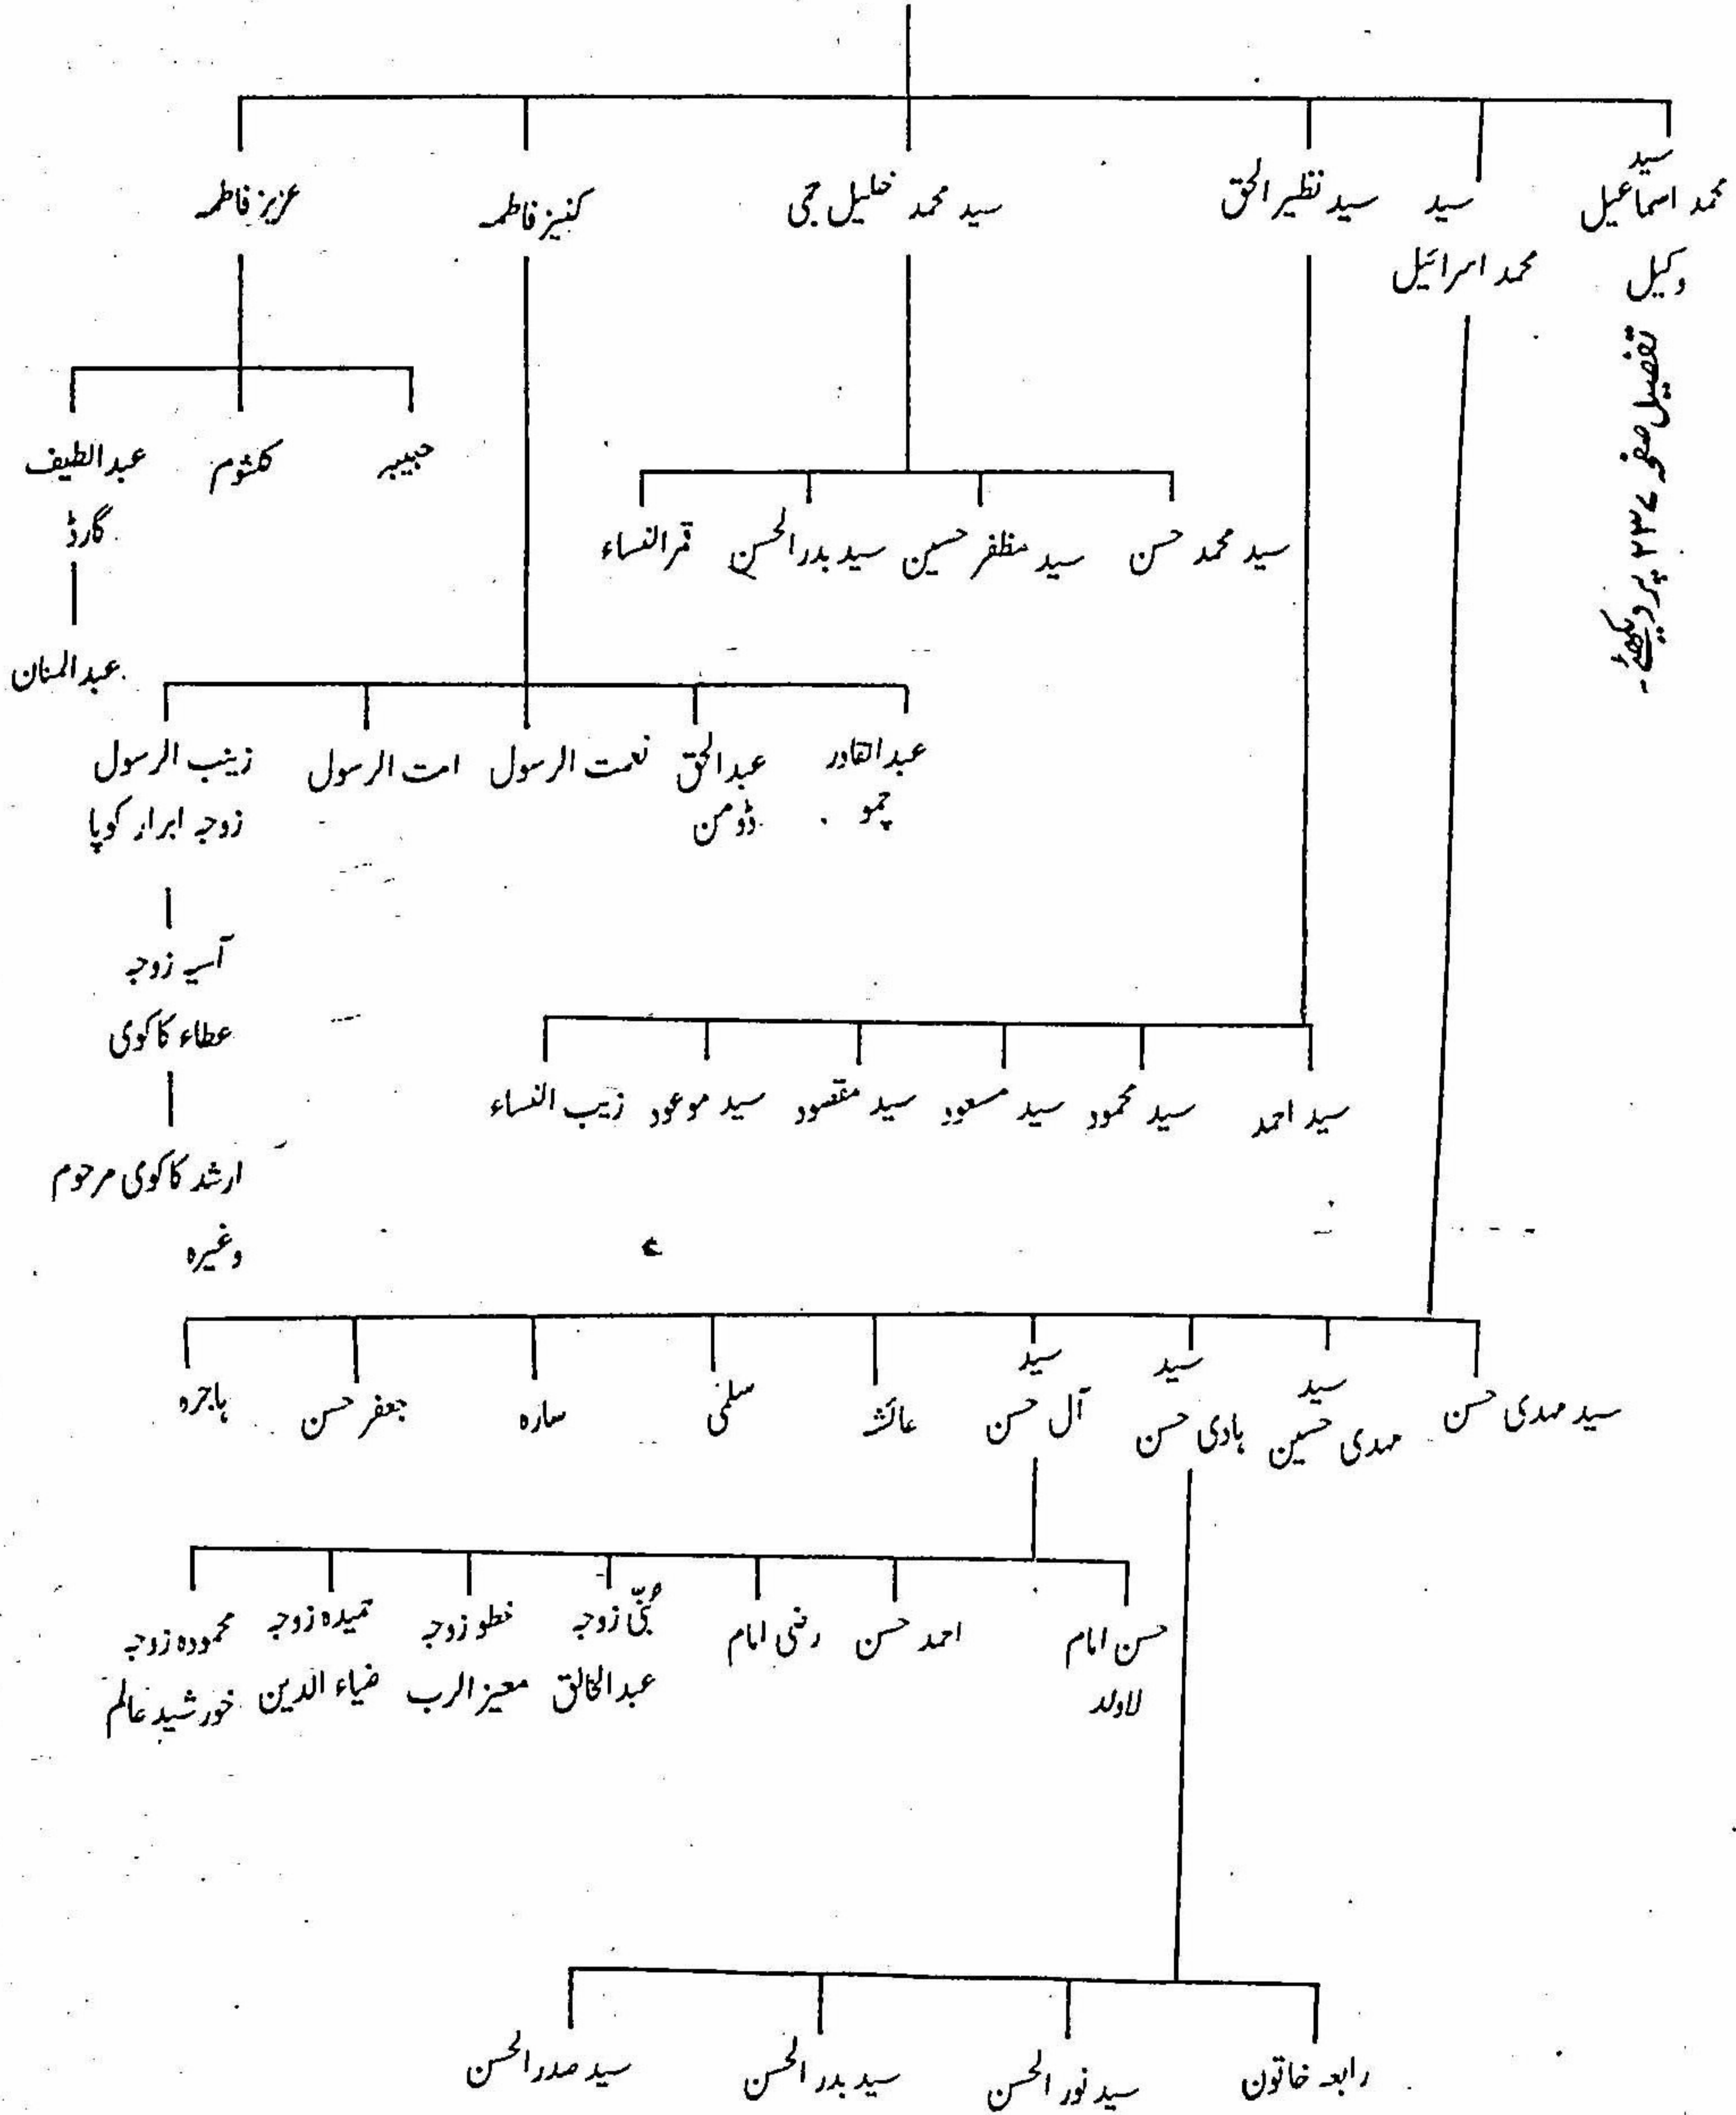 سید
محمد اسماعیل
وکیل
تفصیل صفحہ ۲۳۷ پر دیکھئے۔
سید
محمد اسرائیل
سید نظیر الحق
سید محمد خلیل جی
کنیز فاطمہ
عزیز فاطمہ
حبیبہ
کلثوم
عبد الطیف
گارڈ
عبد المنان
سید محمد حسن
سید مظفر حسین
سید بدر الحسن
قمر النساء
عبد القادر
چمو
عبد الحق
ڈومن
نعمت الرسول
امت الرسول
زینب الرسول
زوجہ ابرار کوپا
آسیہ زوجہ
عطاء کاکوی
ارشد کاکوی مرحوم
وغیرہ
سید احمد
سید محمود
سید مسعود
سید مقصود
سید موعود
زیب النساء
سید مہدی حسن
سید
مہدی حسین
سید
ہادی حسن
سید
آل حسن
عائشہ
سلمٰی
سارہ
جعفر حسن
ہاجرہ
حسن امام
لاولد
احمد حسن
رضی امام
زوجہ
عبد الخالق
زوجہ
معیز الرب
زوجہ
ضیاء الدین
محمودہ زوجہ
خورشید عالم
رابعہ خاتون
سید نور الحسن
سید بدر الحسن
سید صدر الحسن